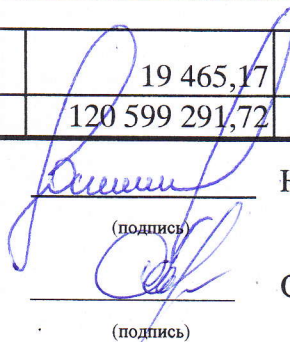 19 465,17
120 599 291,72
(подпись)
(подпись)